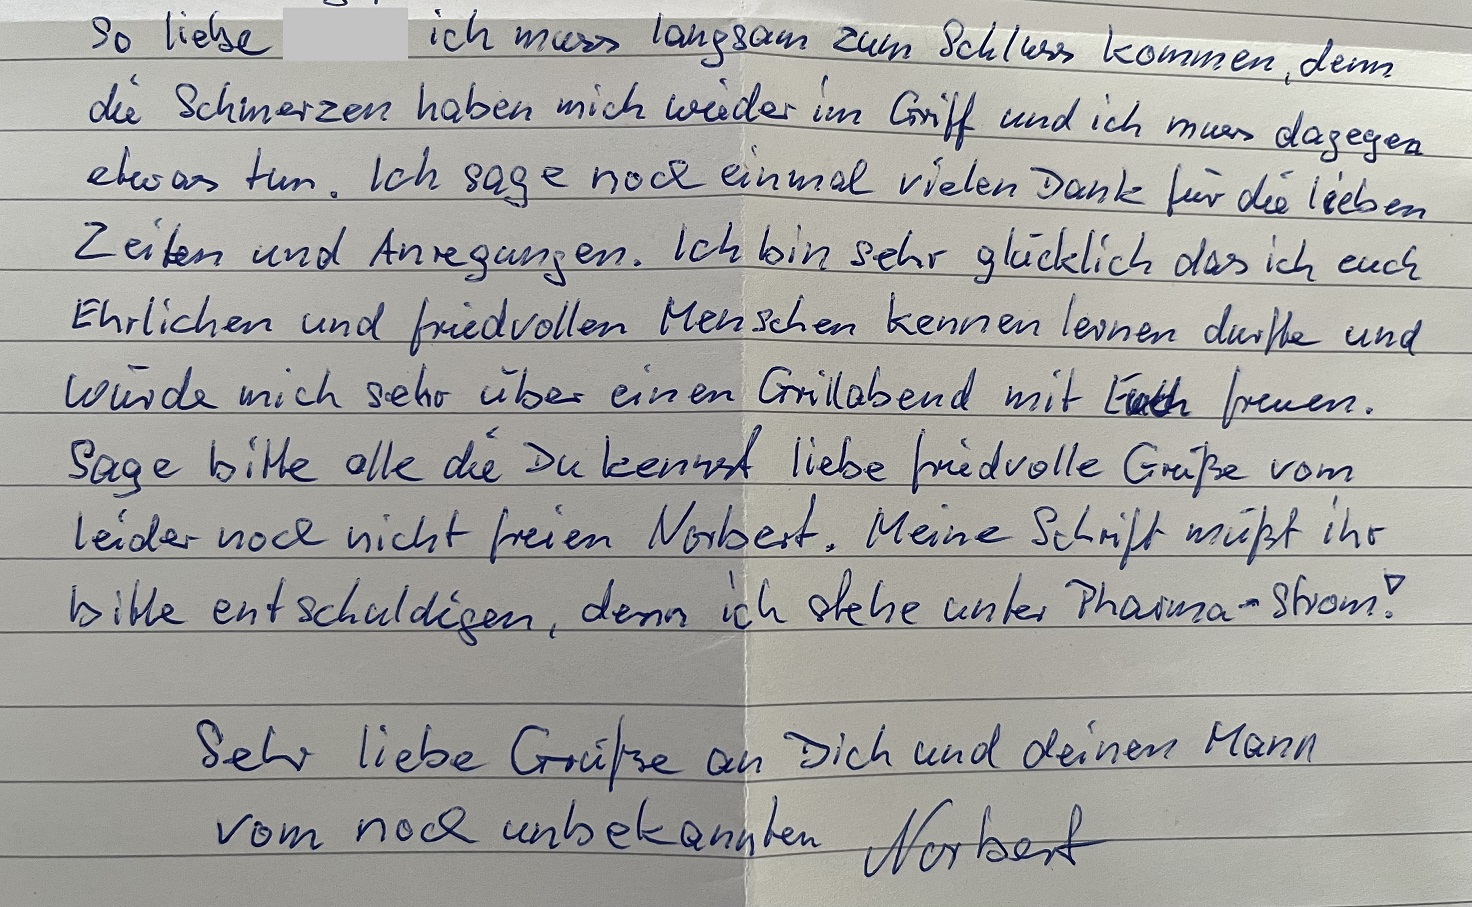 So liebe ich muss langsam zum Schluss kommen, denn
die Schmerzen haben mich wieder im Griff und ich muss dagegen
etwas tun. Ich sage noch einmal vielen Dank für die lieben
Zeilen und Anregungen. Ich bin sehr glücklich das ich euch
Ehrlichen und friedvollen Menschen kennen lernen durfte und
würde mich sehr über einen Grillabend mit Euch freuen.
Sage bitte alle die Du kennst liebe friedvolle Grüße vom
leider noch nicht freien Norbert. Meine Schrift müßt ihr
bitte entschuldigen, denn ich stehe unter Pharma-Strom!
Sehr liebe Grüße an Dich und deinen Mann
vom noch unbekannten Norbert